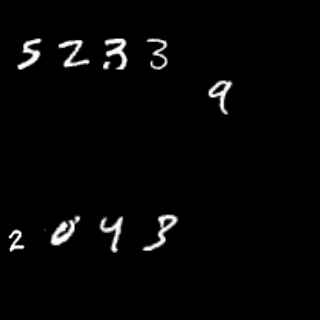 5233
9
2043